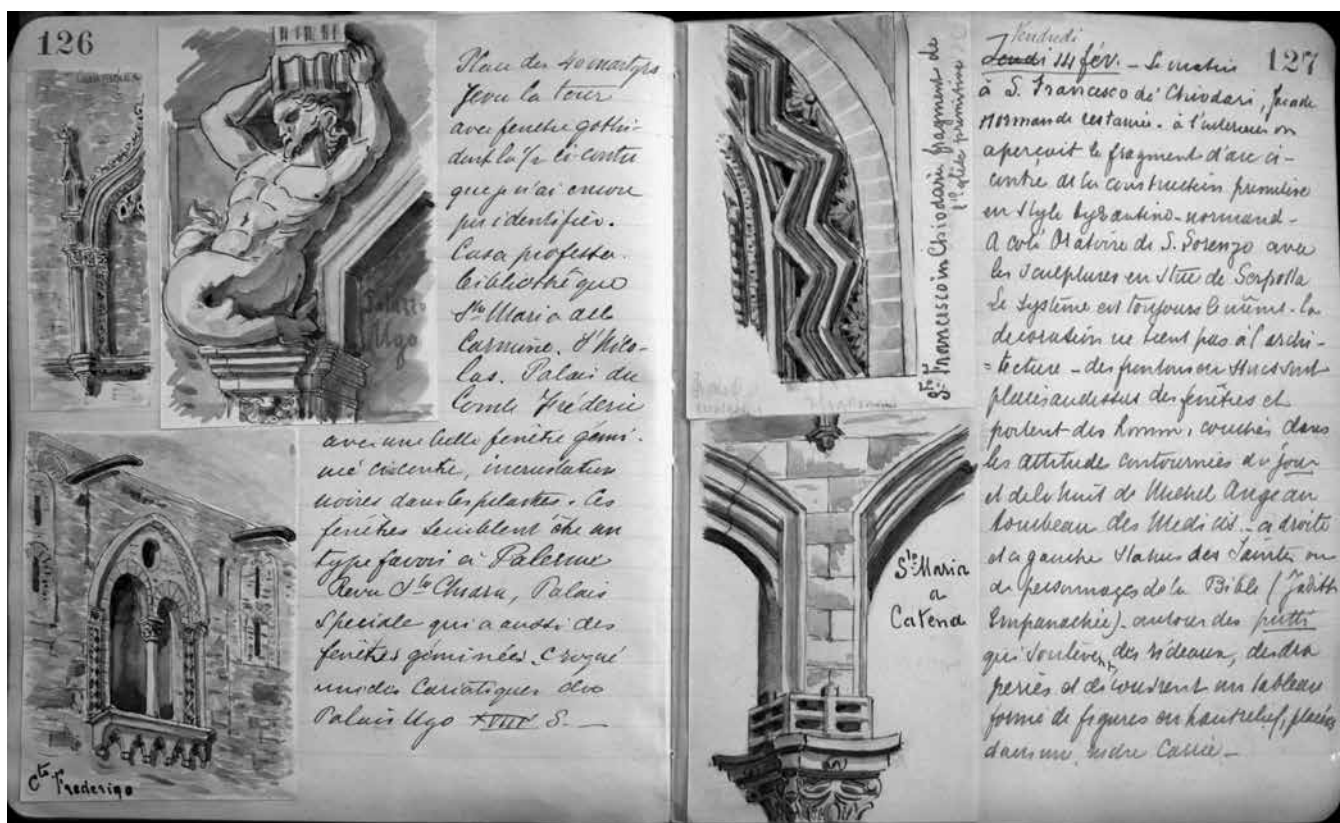 126
Place des 40 martyrs
Revu la tour
avec fenetre gothi-
dont la ½ ci-contre
que je n'ai encore
pu identifier.
Casa professa.
bibliothèque
Sta Maria del
Carmine. S. Nico-
las. Palais du
Comte Fréderic
avec une belle fenêtre gémi-
née ci-contre, incrustations
noires dans les pilastres. Ces
fenêtres semblent être un
type favori à Palerme
Revu Sta Chiara, Palais
Speciale qui a aussi des
fenêtres géminées. Croqué
une des Cariatiques du
Palais Ugo XVIII S. —
Palazzo
Ugo
Cte Frederigo
St Francesco in Chiodari fragment de
l'église primitive
Sta Maria
a
Catena
127
Vendredi
Jeudi 14 fév. – Le matin
à S. Francesco de' Chiodari, façade
Normande restaurée. à l'interieur on
aperçoit le fragment d'arc ci-
contre de la construction primitive
en style byzantino-normand-
A coté Oratoire de S. Lorenzo avec
les sculptures en stuc de Serpotta
Le système est toujours le même. la
decoration ne tient pas à l'archi-
tecture – des frontons en stuc sont
placés au dessus des fenêtres et
portent des homm. couchés dans
les attitudes contournées du jour
et de la nuit de Michel Ange au
tombeau des Medicis – a droite
et a gauche statues des Saintes ou
de personnages de la Bible (Judith
Empanachée). autour des putti
qui soulèvent des rideaux, des dra
peries et découvrent un tableau
formé de figures en haut relief, placées
dans un cadre Carré –